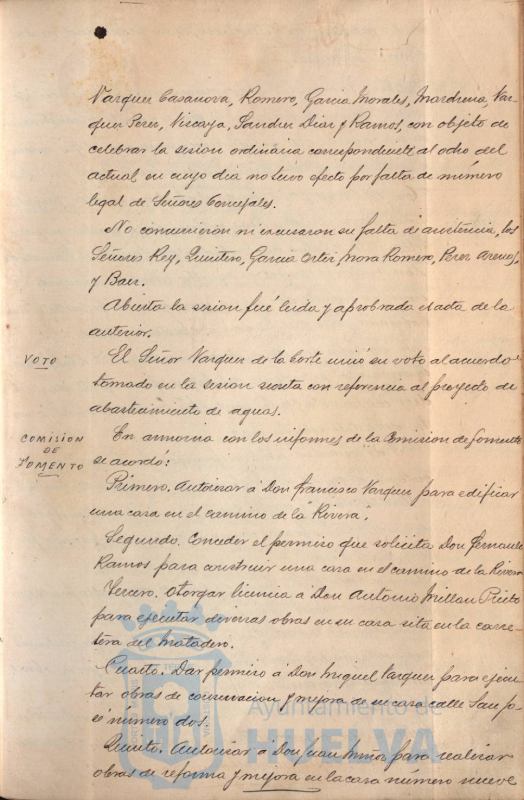 Vazquez Casanova, Romero, Garcia Morales, Mardrena, Vaz-
quez Perez, Vizcaya, Sandez Diaz y Ramos, con objeto de
celebrar la sesion ordinaria correspondiente al ocho del
actual en cuyo dia no tuvo efecto por falta de número
legal de Señores Concejales.
No concurrieron ni excusaron su falta de asistencia, los
Señores Rey, Quintero, Garcia Ortiz, Mora Romero, Perez
y Baez.
Abierta la sesion fué leida y aprobada el acta de la
anterior.
VOTO
El Señor Vazquez de la Corte unió su voto al acuerdo
tomado en la sesion secreta con referencia al proyecto de
abastecimiento de aguas.
COMISION
DE
FOMENTO
En armonia con los informes de la Comision de fomento
se acordó:
Primero. Autorizar á Don Francisco Vazquez para edificar
una casa en el camino de la "Rivera".
Segundo. Conceder el permiso que solicita Don Fernando
Ramos para construir una casa en el camino de la Rivera
Tercero. Otorgar licencia á Don Antonio Millan Prieto
para ejecutar diversas obras en su casa sita en la carre-
tera del Matadero.
Cuarto. Dar permiso á Don Miguel Vazquez para ejecu-
tar obras de conservacion y mejora de su casa calle San Jo-
sé número dos.
Quinto. Autorizar á Don Juan Muñoz para realizar
obras de reforma y mejora en la casa número nueve
Ayuntamiento de
HUELVA